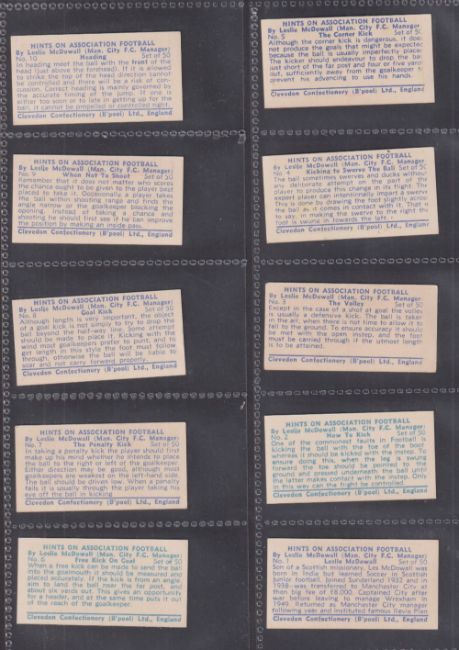 HINTS ON ASSOCIATION FOOTBALL
By Leslie McDowall (Man. City F.C. Manager)
No. 10 Heading Set of 50
In heading meet the ball with the front of the
head (just above the forehead). If it is allowed
to strike the top of the head direction cannot
be controlled and there will be a risk of con-
cussion. Correct heading is mainly governed by
the accurate timing of the jump. If one is
either too soon or to late in getting up for the
ball, it cannot be propelled or controlled right.
Clevedon Confectionery (B'pool) Ltd., England
HINTS ON ASSOCIATION FOOTBALL
By Leslie McDowall (Man. City F.C. Manager
No. 9 When Not To Shoot Set of 50
Remember that it does not matter who scores
the chance ought to be given to the player best
placed to take it. Occasionally a player takes
the ball within shooting range and finds the
angle narrow or the goalkeeper blocking the
opening. Instead of taking a chance and
shooting he should first see if he can improve
the position by making an inside pass.
Clevedon Confectionery (B'pool) Ltd., England
HINTS ON ASSOCIATION FOOTBALL
By Leslie McDowall (Man. City F.C. Manager)
No. 8 Goal Kick Set of 50
Although length is very important, the object
of a goal kick is not simply to try to drop the
ball beyond the half-way line. Some attempt
should be made to place it. Kicking with the
wind most goalkeepers prefer to punt, and to
get length in this style the foot must follow
through, otherwise the ball will be liable to
soar and not carry forward properly.
Clevedon Confectionery (B'pool) Ltd., England
HINTS ON ASSOCIATION FOOTBALL
By Leslie McDowall (Man. City F.C. Manager)
No. 7 The Penalty Kick Set of 50
In taking a penalty kick the player should first
make up his mind whether he intends to place
the ball to the right or left of the goalkeeper.
Either direction may be good, although most
goalkeepers are weakest on the left-hand side.
The ball should be driven low. When a penalty
fails it is usually through the player taking his
eye off the ball in kicking
Clevedon Confectionery (B'pool) Ltd., England
HINTS ON ASSOCIATION FOOTBALL
By Leslie McDowall (Man. City F.C. Manager)
No. 6 Free Kick On Goal Set of 50
When a free kick can be made to send the ball
into the goalmouth it should be measured and
placed accurately. If the kick is from an angle
aim to land the ball near the far post, and
about six yards out. This gives an opportunity
for a header, and at the same time puts it out
of the reach of the goalkeeper.
Clevedon Confectionery (B'pool) Ltd., England
HINTS ON ASSOCIATION FOOTBALL
By Leslie McDowall (Man. City F.C. Manager
No. 5 The Corner Kick Set of 50
Although the corner kick is dangerous, it does
not produce the goals that might be expected
because the ball is usually imperfectly placed
The kicker should endeavour to drop the ball
just short of the far post and four or five yards
out, sufficiently away from the goalkeeper to
prevent his advancing to use his hands.
Clevedon Confectionery (B'pool) Ltd., England
HINTS ON ASSOCIATION FOOTBALL
By Leslie McDowall (Man. City F.C. Manager
No. 4 Kicking To Swerve The Ball Set of 50
The ball sometimes swerves and ducks without
any deliberate attempt on the part of the
player to produce this change in its flight. The
expert player can intentionally impart a swerve
This is done by drawing the foot slightly across
the ball as it comes in contact with it. That is
to say, in making the swerve to the right the
foot is swung in towards the left.
Clevedon Confectionery (B'pool) Ltd., England
HINTS ON ASSOCIATION FOOTBALL
By Leslie McDowall (Man. City F.C. Manager
No. 3 The Volley Set of 50
Except in the case of a shot at goal the volley
is usually a defensive kick. The ball is taken
in the air, when there is not time to allow it to
fall to the ground. To ensure accuracy it should
be met with the open instep, and the foot
must be carried through if the utmost length
is to be attained.
Clevedon Confectionery (B'pool) Ltd., England
HINTS ON ASSOCIATION FOOTBALL
By Leslie McDowall (Man. City F.C. Manager)
No. 2 How To Kick Set of 50
One of the commonest faults in Football is
kicking the ball with the toe of the boot
whereas it should be kicked with the instep. To
ensure doing this, when the leg is swung
forward the toe should be pointed to the
ground and pressed underneath the ball until
the latter makes contact with the instep. Only
in this way can the flight be controlled.
Clevedon Confectionery (B'pool) Ltd., England
HINTS ON ASSOCIATION FOOTBALL
By Leslie McDowall (Man. City F.C. Manager)
No. 1 Leslie McDowall Set of 50
Son of a Scottish missionary, Les McDowall was
born in India but learned Soccer in Scottish
junior football. Joined Sunderland 1932 and in
1938 was transferred to Manchester City at
then big fee of £8,000. Captained City after
war before leaving to manage Wrexham in
1949. Returned as Manchester City manager
following year and instituted famous Revie Plan
Clevedon Confectionery (B'pool) Ltd., England